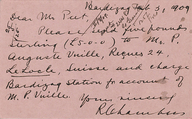 Bardizag Sept 3, 1909
Dear Mr Peet,
Please send five pounds
Sterling (£5.0.0) to Mr. P.
Auguste Vuille, Recues 24,
Le Locle, Suisse and charge
Bardizag Station for account of
M. P. Vuille.
Yours sincerely
R Chambers